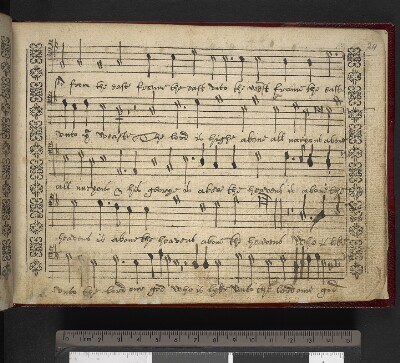 24
from the east from the east unto the west from the east
unto ye weaste The lord is highe above all nacyons above
all nacyons & his glorye is above the heavens is above the
heavens is above the heavens above the heavens Who is like
unto the lord our god Who is lyke unto the lord our god